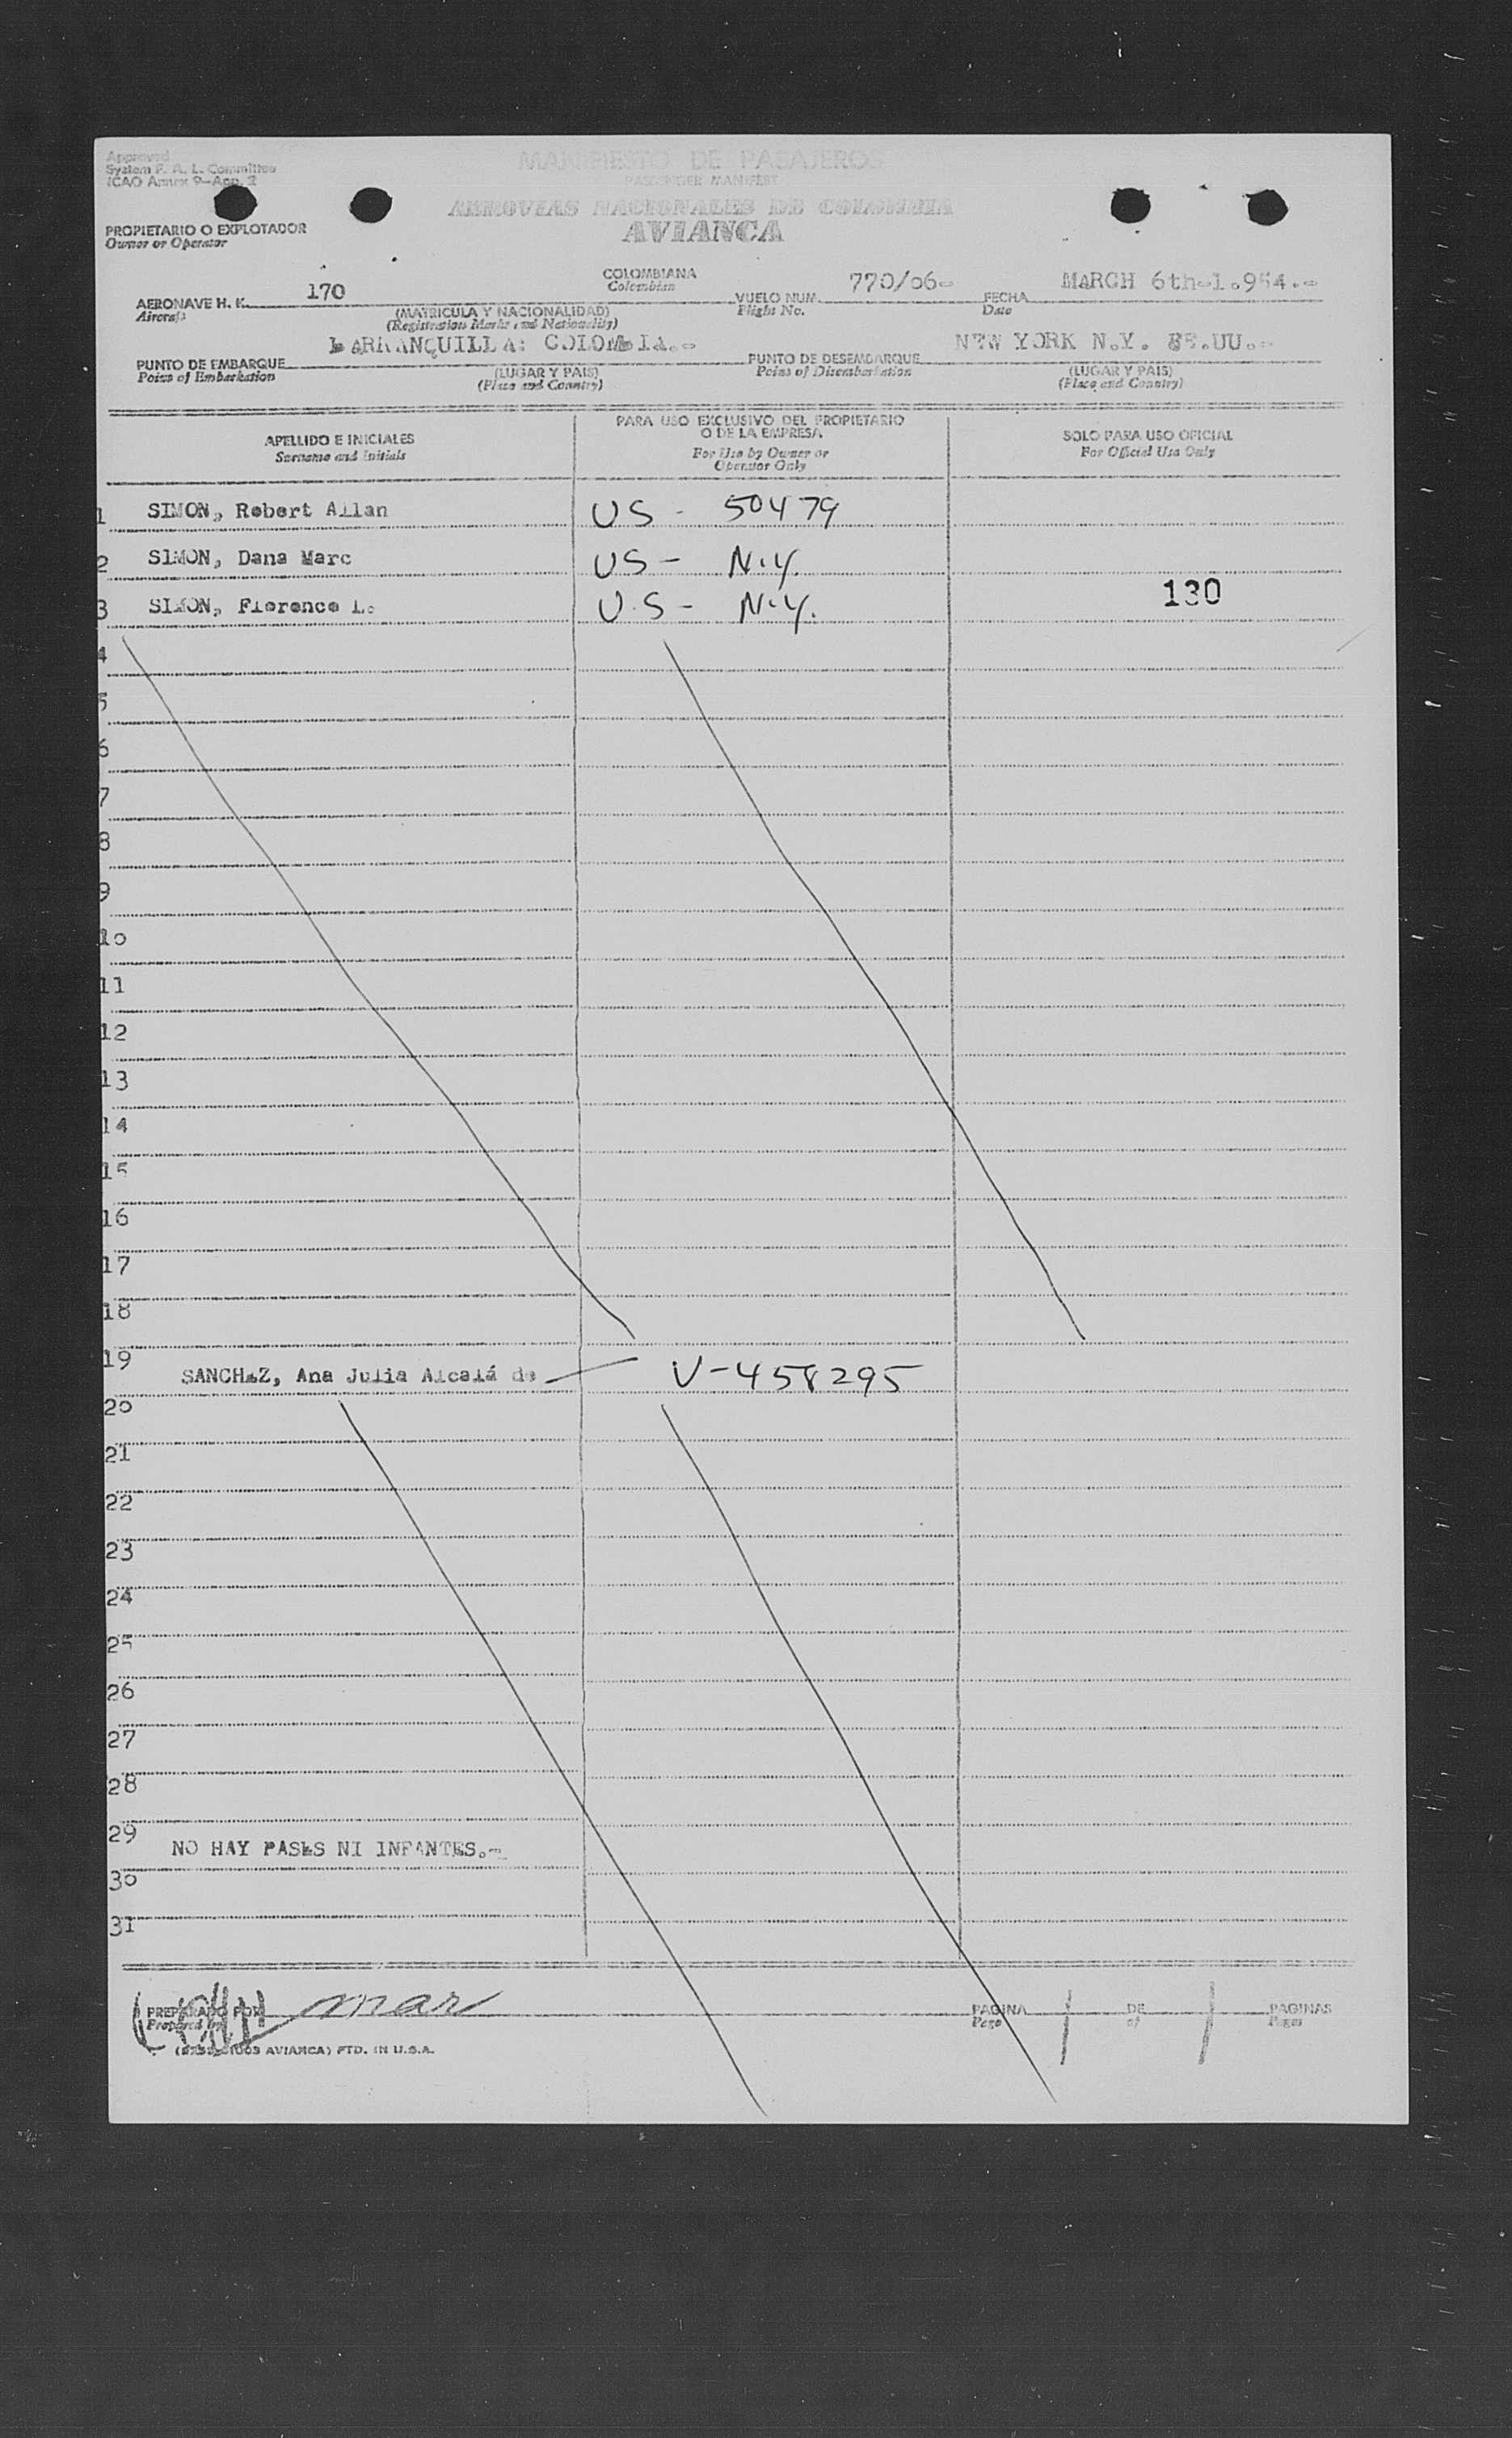 Approved
System F. A. L. Committee
ICAO Annex 9-App. 2
MANIFIESTO DE PASAJEROS
PASSENGER MANIFEST
AEROVIAS NACIONALES DE COLOMBIA
AVIANCA
PROPIETARIO O EXPLOTADOR
Owner or Operator
AERONAVE H. K. 170 COLOMBIANA VUELO NUM. 770/06- FECHA MARCH 6th-1.954.-
Aircraft Colombian Flight No. Date
(MATRICULA Y NACIONALIDAD)
(Registration Marks and Nationality)
PUNTO DE EMBARQUE BARRANQUILLA: COLOMBIA.- PUNTO DE DESEMBARQUE NEW YORK N.Y. EE.UU.-
Point of Embarkation (LUGAR Y PAIS) Point of Disembarkation (LUGAR Y PAIS)
(Place and Country) (Place and Country)
APELLIDO E INICIALES
Surname and Initials
PARA USO EXCLUSIVO DEL PROPIETARIO
O DE LA EMPRESA
For Use by Owner or
Operator Only
SOLO PARA USO OFICIAL
For Official Use Only
1 SIMON, Robert Allan US - 50479
2 SIMON, Dana Marc US - N.Y.
3 SIMON, Florence L. U.S - N.Y. 130
4
5
6
7
8
9
10
11
12
13
14
15
16
17
18
19 SANCHEZ, Ana Julia Alcalá de V-458295
20
21
22
23
24
25
26
27
28
29 NO HAY PASES NI INFANTES.-
30
31
PREPARADO POR mar PAGINA 1 DE 1 PAGINAS
Prepared by Page of Pages
AVIANCA) PTD. IN U.S.A.